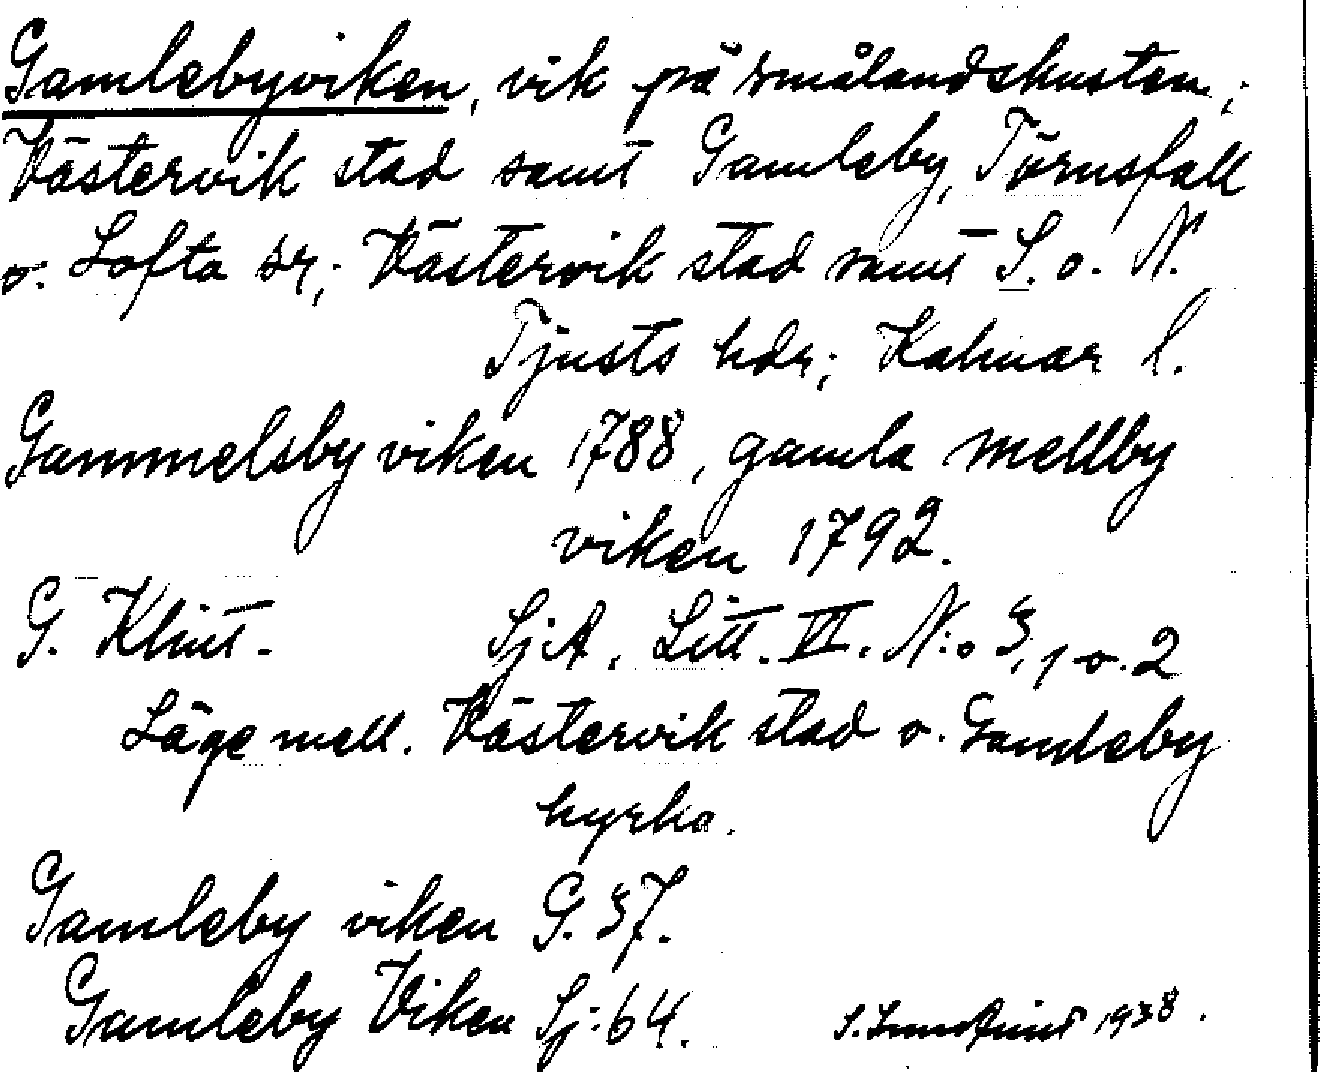 Gamlebyviken, vik på smålandskusten;
Västervik stad samt Gamleby, Törnsfall
o. Lofta sr; Västervik stad samt S. o. N.
Tjusts hdr; Kalmar l.
Gammelsbyviken 1788, gamla mellby
viken 1792.
G. Klint. SjA. Litt. VI. N:o 3, 1 o. 2
Läge mell. Västervik stad o. Gamleby
kyrka.
Gamleby viken G. 37.
Gamleby Viken Sj: 64. 1938.